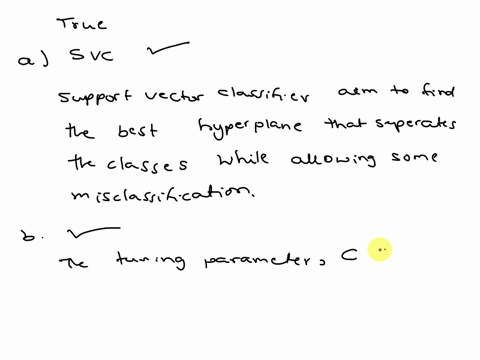 True
a) SVC ✓
support vector classifier aem to find
the best hyperplane that superates
the classes while allowing some
misclassification.
b. ✓
The tuning parameter, C